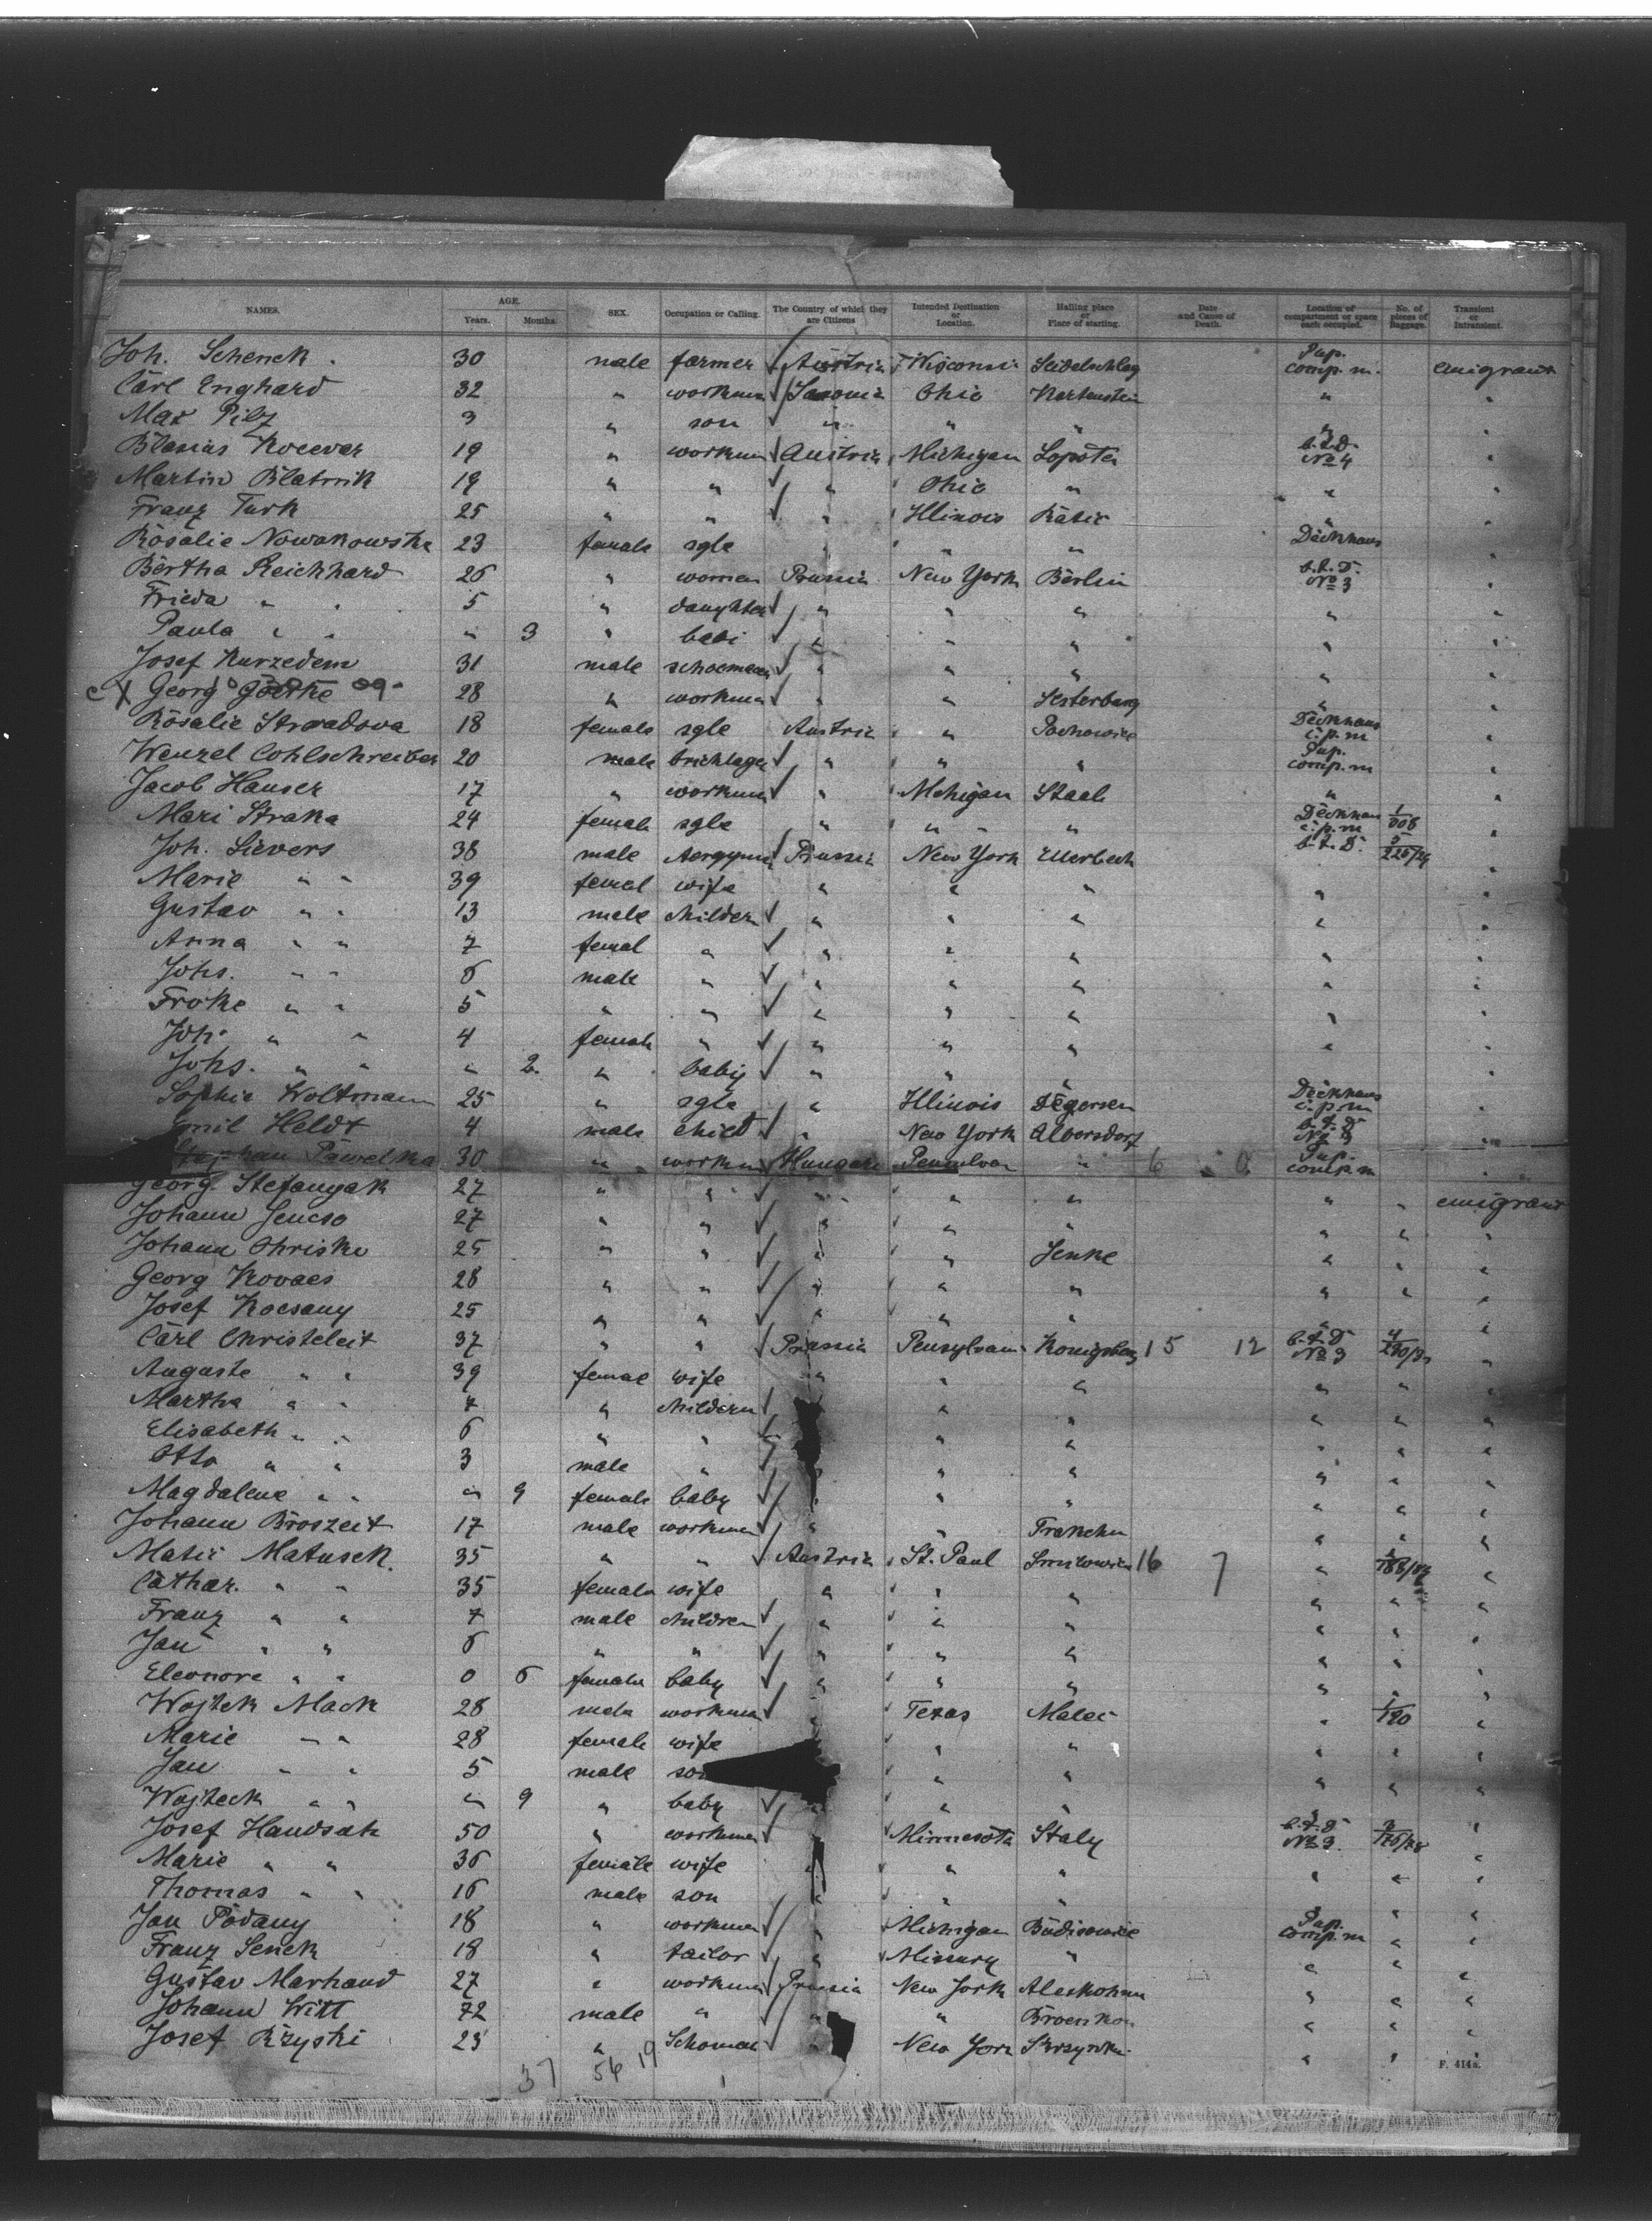 NAMES. AGE. Years. Months. SEX. Occupation or Calling. The Country of which they are Citizens Intended Destination or Location. Hailing place or Place of starting. Date and Cause of Death. Location of compartment or space each occupied. No. of pieces of Baggage. Transient or Intransient.
Joh. Schenck. 30 male farmer Austria Wisconsin Seidelschlag Pap. comp. m. emigrant
Carl Enghard 32 " workman Saxonia Ohio Hartenstein " "
Max Pilz 3 " son " " " " "
Blasius Kocevar 19 " workman Austria Michigan Lopota b.t.D. No 4 "
Martin Blatnik 19 " " " Ohio " " "
Franz Turk 25 " " " Illinois Ratic " "
Rosalie Nowakowska 23 female sgle " " " Deckhaus "
Bertha Reichhard 26 " woman Prussia New York Berlin b.t.D. No 3 "
Frieda " " 5 " daughter " " " " "
Paula " " " 3 " babi " " " " "
Josef Kurzedem 31 male " " " " "
c X Georg Goerke 28 " workman " " Sesterburg " "
Rosalie 18 female sgle Austria " Deckhaus c.p.m "
Wenzel Cohlschreiber 20 male bricklager " " " Pap. comp. m "
Jacob Hauser 17 " workman " Michigan Staab " "
Mari Straka 24 female sgle " " " Deckhaus c.p.m 1/908 "
Joh. Sievers 38 male Prussia New York Ellerbeck b.t.D. 5/225/29 "
Marie " " 39 femal wife " " " " "
Gustav " " 13 male childern " " " " "
Anna " " 7 femal " " " " " "
Johs. " " 6 male " " " " " "
Froke " " 5 " " " " " " "
Joh. " " 4 female " " " " " "
Johs. " " " 2. " baby " " " "
Sophie Woltmann 25 " sgle " Illinois Degersen Deckhaus c.p.m "
Emil Heldt 4 male child " New York Albersdorf b.t.D No 3 "
Pawelka 30 " workman Hungary " 6 Pap. comp. m "
Georg. Stefanyak 27 " " " " " " " emigrant
Johann Jencso 27 " " " " " " " "
Johann Chriske 25 " " " " Jenke " " "
Georg Kovacs 28 " " " " " " " "
Josef Kocsany 25 " " " " " " "
Carl Christeleit 37 " " Prussia Pensylvani Konigsberg 15 12 b.t.D No 3 4/230/33 "
Auguste " " 39 female wife " " " " " "
Martha " " 7 " childern " " " " "
Elisabeth " " 6 " " " " " " "
Otto " " 3 male " " " " " "
Magdalene " " " 9 female baby " " " " " "
Johann Broszeit 17 male workman " " Trakehn " " "
Matic Matusek. 35 " " Austria St. Paul 16 7 " "
Cathar. " " 35 female wife " " " " " "
Franz " " 7 male children " " " " " "
Jan " " 6 " " " " " " " "
Eleonore " " 0 6 female baby " " " " " "
Wojtek Mack 28 male workman Texas Malec " 1/190 "
Marie " " 28 female wife " " " " "
Jan " " 5 male son " " " " "
Wojteck " " " 9 " baby " " " "
Josef Handsak 50 " workman Minnesota Staly b.t.D No 3. "
Marie " " 36 female wife " " " " "
Thomas " " 16 male son " " " " " "
Jan Podany 18 " workman " Michigan Budisowice Pap. comp. m " "
Franz Senek 18 " tailor " Missury " " " "
Gustav Marhand 27 " workman Prussia New York " " "
Johann Witt 72 male " " " " " "
Josef Rzyski 23 " Schoman " New York " " "
37 54 19
F. 414a.